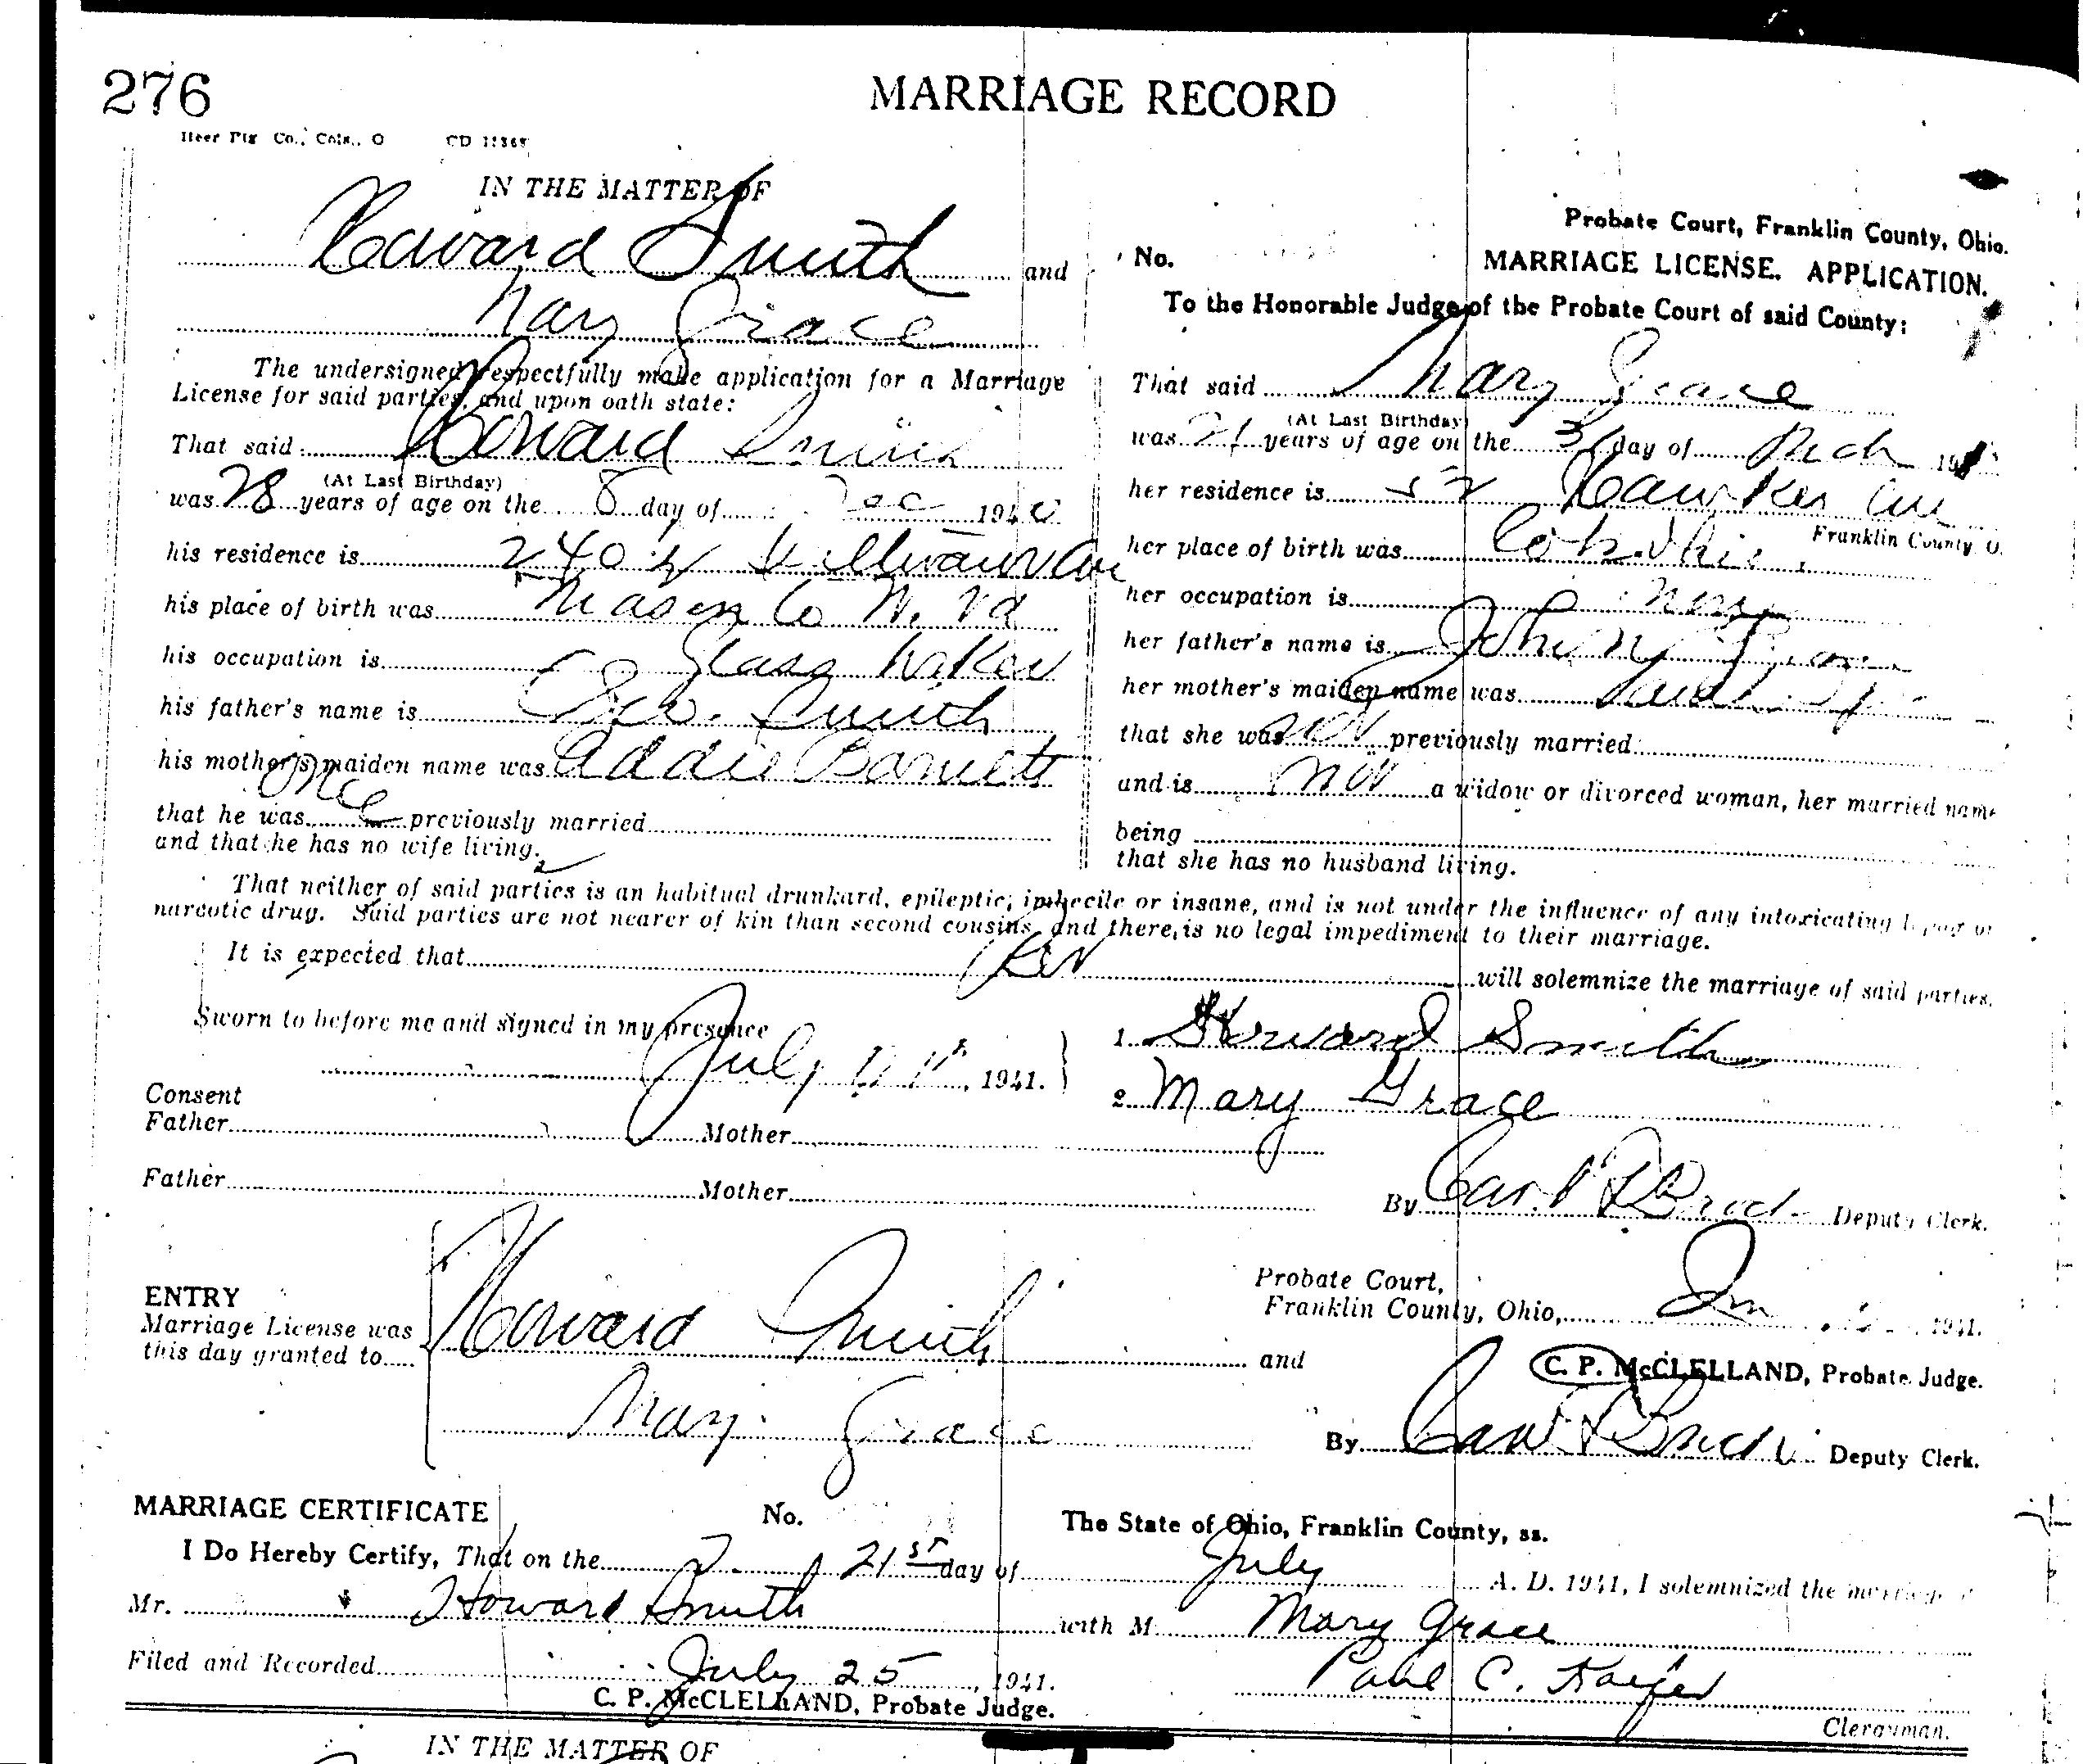 276
MARRIAGE RECORD
Heer Ptg Co., Cols., O
IN THE MATTER OF
Howard Smith and
Mary Grace
The undersigned respectfully make application for a Marriage
License for said parties, and upon oath state:
That said Howard Smith
(At Last Birthday)
was 28 years of age on the 8 day of Dec 1940
his residence is 240 Ave
his place of birth was Mason Co W. Va
his occupation is Glass
his father's name is Geo. Smith
his mother's maiden name was Addie Barnett
that he was once previously married
and that he has no wife living.
Probate Court, Franklin County, Ohio.
No. MARRIAGE LICENSE. APPLICATION.
To the Honorable Judge of the Probate Court of said County:
That said Mary Grace
(At Last Birthday)
was 21 years of age on the 31 day of Mch 19
her residence is 52 Hawkes Ave
Franklin County O.
her place of birth was Cols. Ohio
her occupation is
her father's name is John
her mother's maiden name was
that she was not previously married
and is not a widow or divorced woman, her married name
being
that she has no husband living.
That neither of said parties is an habitual drunkard, epileptic, imbecile or insane, and is not under the influence of any intoxicating liquor or
narcotic drug. Said parties are not nearer of kin than second cousins, and there is no legal impediment to their marriage.
It is expected that Rev will solemnize the marriage of said parties.
Sworn to before me and signed in my presence
July 1941.
1. Howard Smith
2. Mary Grace
Consent
Father Mother
Father Mother
By Deputy Clerk.
ENTRY
Marriage License was
this day granted to
Howard Smith and
Mary Grace
Probate Court,
Franklin County, Ohio, 1941.
C. P. McCLELLAND, Probate Judge.
By Deputy Clerk.
MARRIAGE CERTIFICATE No. The State of Ohio, Franklin County, ss.
I Do Hereby Certify, That on the 21st day of July A. D. 1941, I solemnized the marriage
Mr. Howard Smith with M Mary Grace
Filed and Recorded July 25, 1941. Paul C.
C. P. McCLELLAND, Probate Judge.
Clergyman.
IN THE MATTER OF